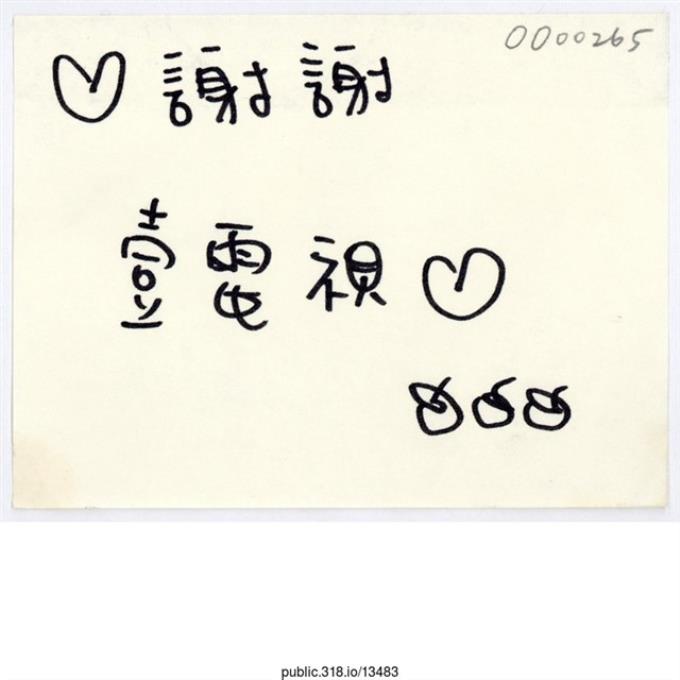 0000265
♡ 謝謝
壹電視 ♡
public.318.io/13483